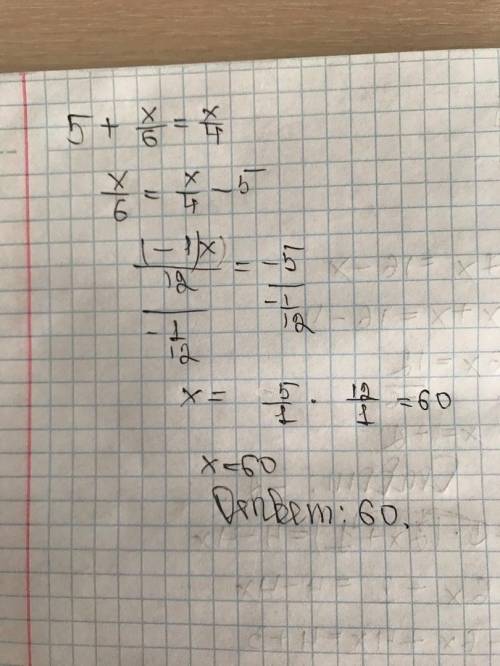 5 + x/6 = x/4
x/6 = x/4 - 5
((-1)x)/12 / -1/12 = -5 / -1/12
x = 5/1 · 12/1 = 60
x = 60
Ответ: 60.